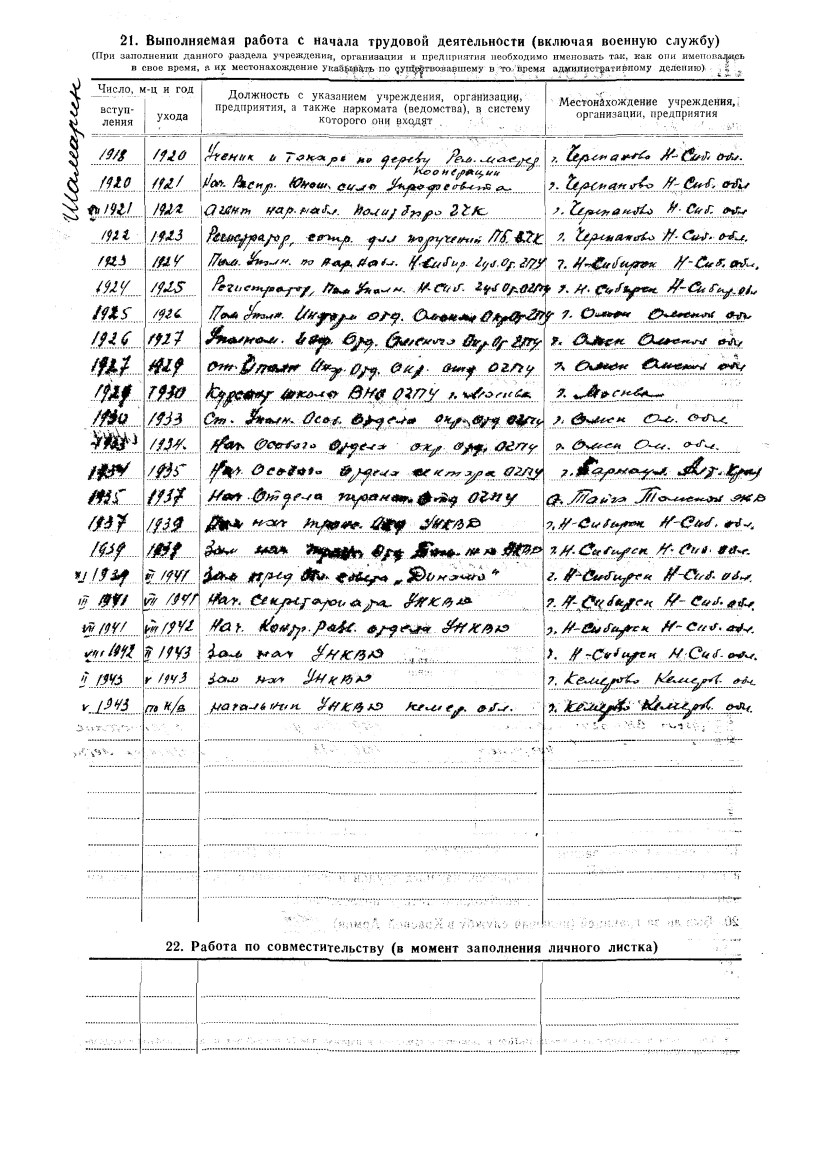 Шамарин
21. Выполняемая работа с начала трудовой деятельности (включая военную службу)
(При заполнении данного раздела учреждения, организации и предприятия необходимо именовать так, как они именовались
в свое время, а их местонахождение указывать по существовавшему в то время административному делению)
Число, м-ц и год
вступ-
ления
ухода
Должность с указанием учреждения, организации,
предприятия, а также наркомата (ведомства), в систему
которого они входят
Местонахождение учреждения,
организации, предприятия
1918 1920 Ученик и токарь по дереву Рем. мастер Кооперации г. Черепаново Н-Сиб. обл.
1920 1921 г. Черепаново Н-Сиб. обл
1921 1922 агент нар. набл. Политбюро ГЧК г. Черепаново Н. Сиб. обл
1922 1923 Регистратор, сотр. для поручений ПБ. г. Черепаново Н-Сиб. обл.
1923 1924 Пом. Уполн. по нар. набл. Н-Сибир. Губ. От. ГПУ г. Н-Сибирск Н-Сиб. обл.
1924 1925 Регистратор, Пом Уполн. Н-Сиб. Губ От. ОГПУ г. Н. Сибирск Н-Сибир. обл
1925 1926 Пом Уполн. Информ отд. Омского Окр От ГПУ г. Омск Омской обл
1926 1927 Уполном. Инф. Отд. Омского Окр. От. ГПУ г. Омск Омской обл
1927 1929 Окр. отд ОГПУ г. Омск Омской обл
1929 1930 Курсант школы ОГПУ г. Москва г. Москва
1930 1933 Ст. Уполн. Особ. Отдела окр. отд ОГПУ г. Омск Ом. обл.
1933 1934. Нач Особого Отдела окр отд. ОГПУ г. Омск Ом. обл.
1934 1935 Нач Особого Отдела сектора ОГПУ г. Барнаул Алт. Край
1935 1937 Нач Отдела транс. отд ОГПУ Тайга Томской ж д
1937 1939 нач транс. Отд УНКВД г. Н-Сибирск Н-Сиб. обл.
1939 1939 Зам нач Отд г. Н. Сибирск Н. Сиб. обл.
XI 1939 III 1941 Зам пред совета „Динамо" г. Н-Сибирск Н-Сиб. обл.
III 1941 VII 1941 Нач. Секретариата УНКВД г. Н-Сибирск Н-Сиб. обл.
VII 1941 VIII 1942 Нач. Контр. Разв. отдела УНКВД г. Н-Сибирск Н-Сиб. обл.
VIII 1942 II 1943 Зам нач УНКВД г. Н-Сибирск Н. Сиб. обл.
II 1943 V 1943 Зам нач УНКВД г. Кемерово Кемеров. обл
V 1943 по н/в начальник УНКВД кемер. обл. г. Кемерово Кемеров. обл.
22. Работа по совместительству (в момент заполнения личного листка)